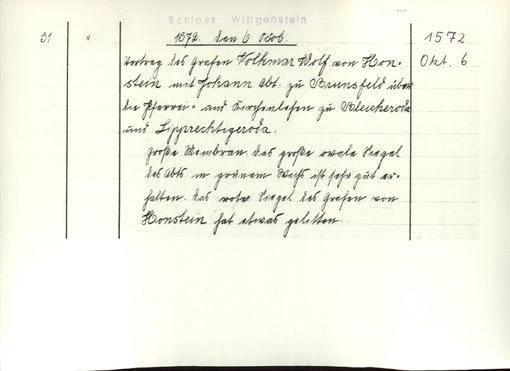 Schloss Wittgenstein
51 " 1572. den 6 Octob. 1572
Vertrag des Grafen Volkmar Wolf von Hon- Okt. 6
stein mit Johann Abt. zu Brunsfeld über
die Pfarrei- und Kirchenlehen zu Bleicheroda
und Lipprechtigeroda.
Große Membran. Das große ovale Siegel
des Abts in grünem Wachs ist sehr gut er-
halten. Das rote Siegel des Grafen von
Honstein hat etwas gelitten.